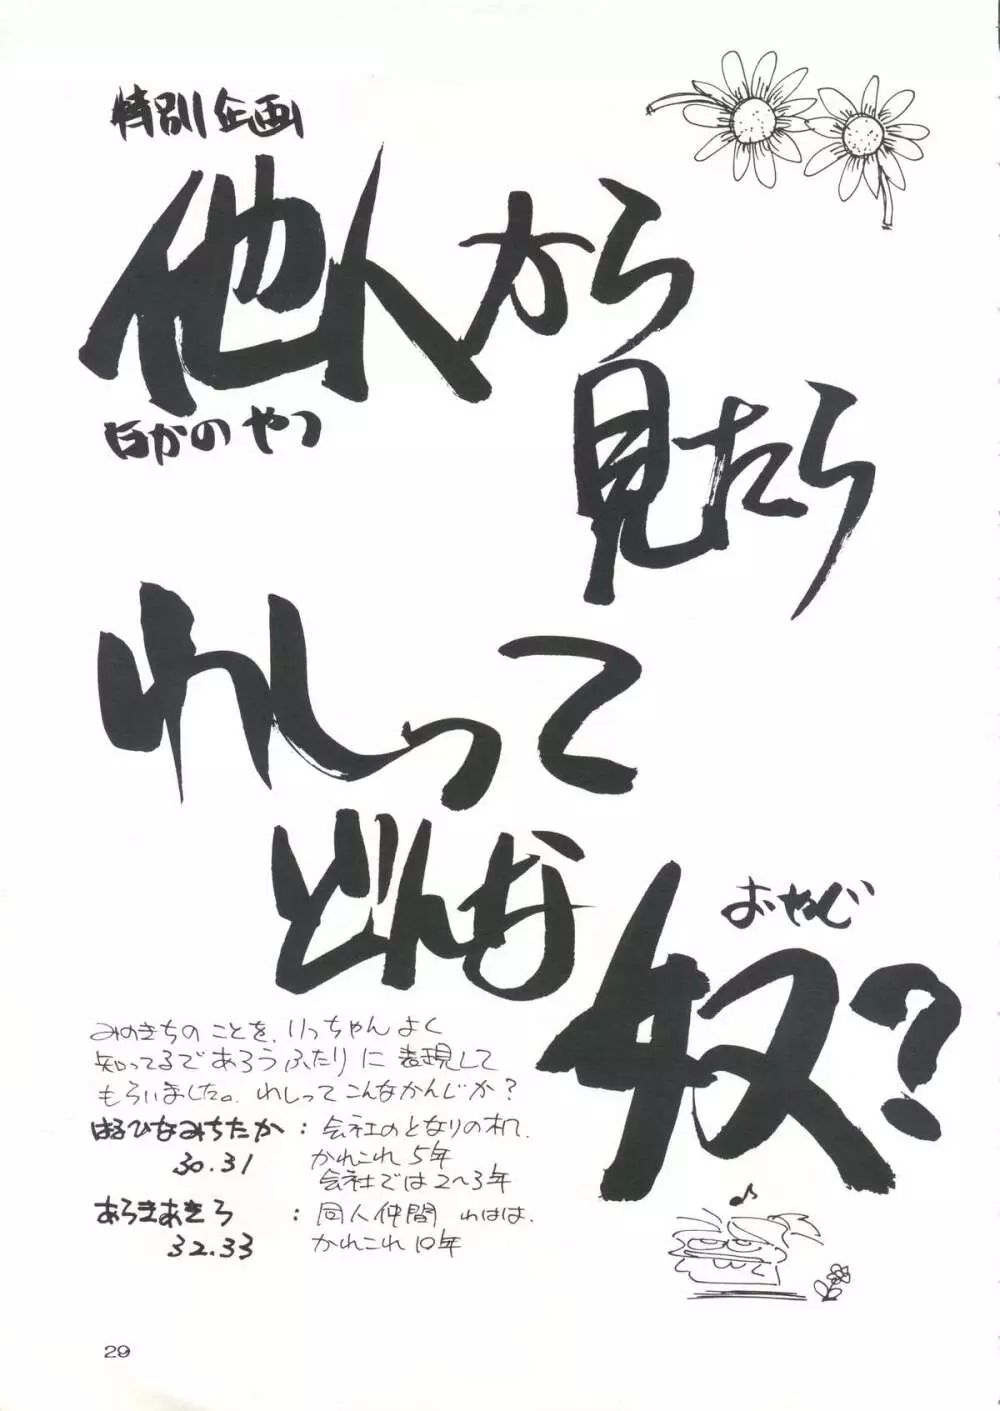 特別企画
他人から
ほかのやつ
見たら
わしって
どんな
おやじ
奴?
みのきちのことを、いっちゃんよく
知ってるであろうふたりに表現して
もらいました。わしってこんなかんじか?
はるひなみちたか:会社のとなりの机、
30.31 かれこれ5年
会社では2〜3年
あらきあきら:同人仲間 わはは、
32.33 かれこれ10年
♪
29